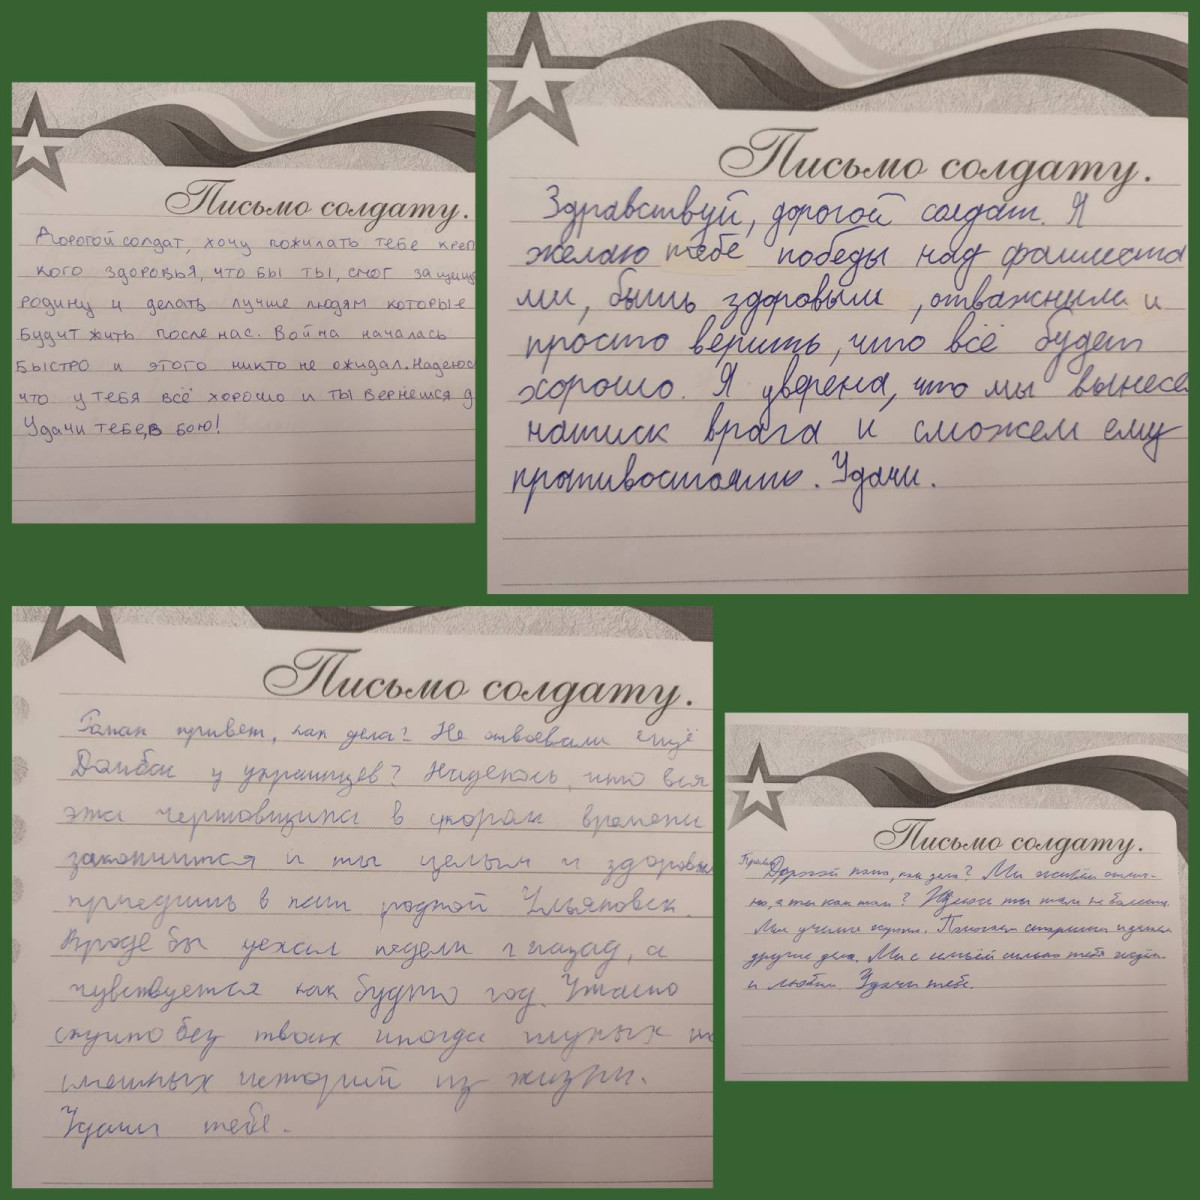 Письмо солдату.
Дорогой солдат, хочу пожилать тебе креп
кого здоровья, что бы ты, смог защищ
родину и делать лучше людям которые
будит жить после нас. Война началась
быстро и этого никто не ожидал. Надеюс
что у тебя всё хорошо и ты вернёшся д
Удачи тебе, в бою!
Письмо солдату.
Здравствуй, дорогой солдат. Я
желаю тебе победы над фашиста
ми, быть здоровым, отважным и
просто верить, что всё будет
хорошо. Я уверена, что мы вынесе
натиск врага и сможем ему
противостоять. Удачи.
Письмо солдату.
привет, как дела? Не отвоевали ещё
Донбас у украинцев? Надеюсь, что вся
эта чертовщина в скором времени
закончится и ты целым и здоровы
приедишь в наш родной Ульяновск.
Вроде бы уехал недели 2 назад, а
чувствуется как будто год. Ужасно
скучно без твоих иногда глупых но
смешных историй из жизни.
Удачи тебе.
Письмо солдату.
Дорогой папа, как дела? Мы живём отлич-
но, а ты как там? Надеюсь ты там не болеешь.
Мы учимся. Помогаем старшим и делаем
другие дела. Мы с семьёй сильно тебя ждём
и любим. Удачи тебе.